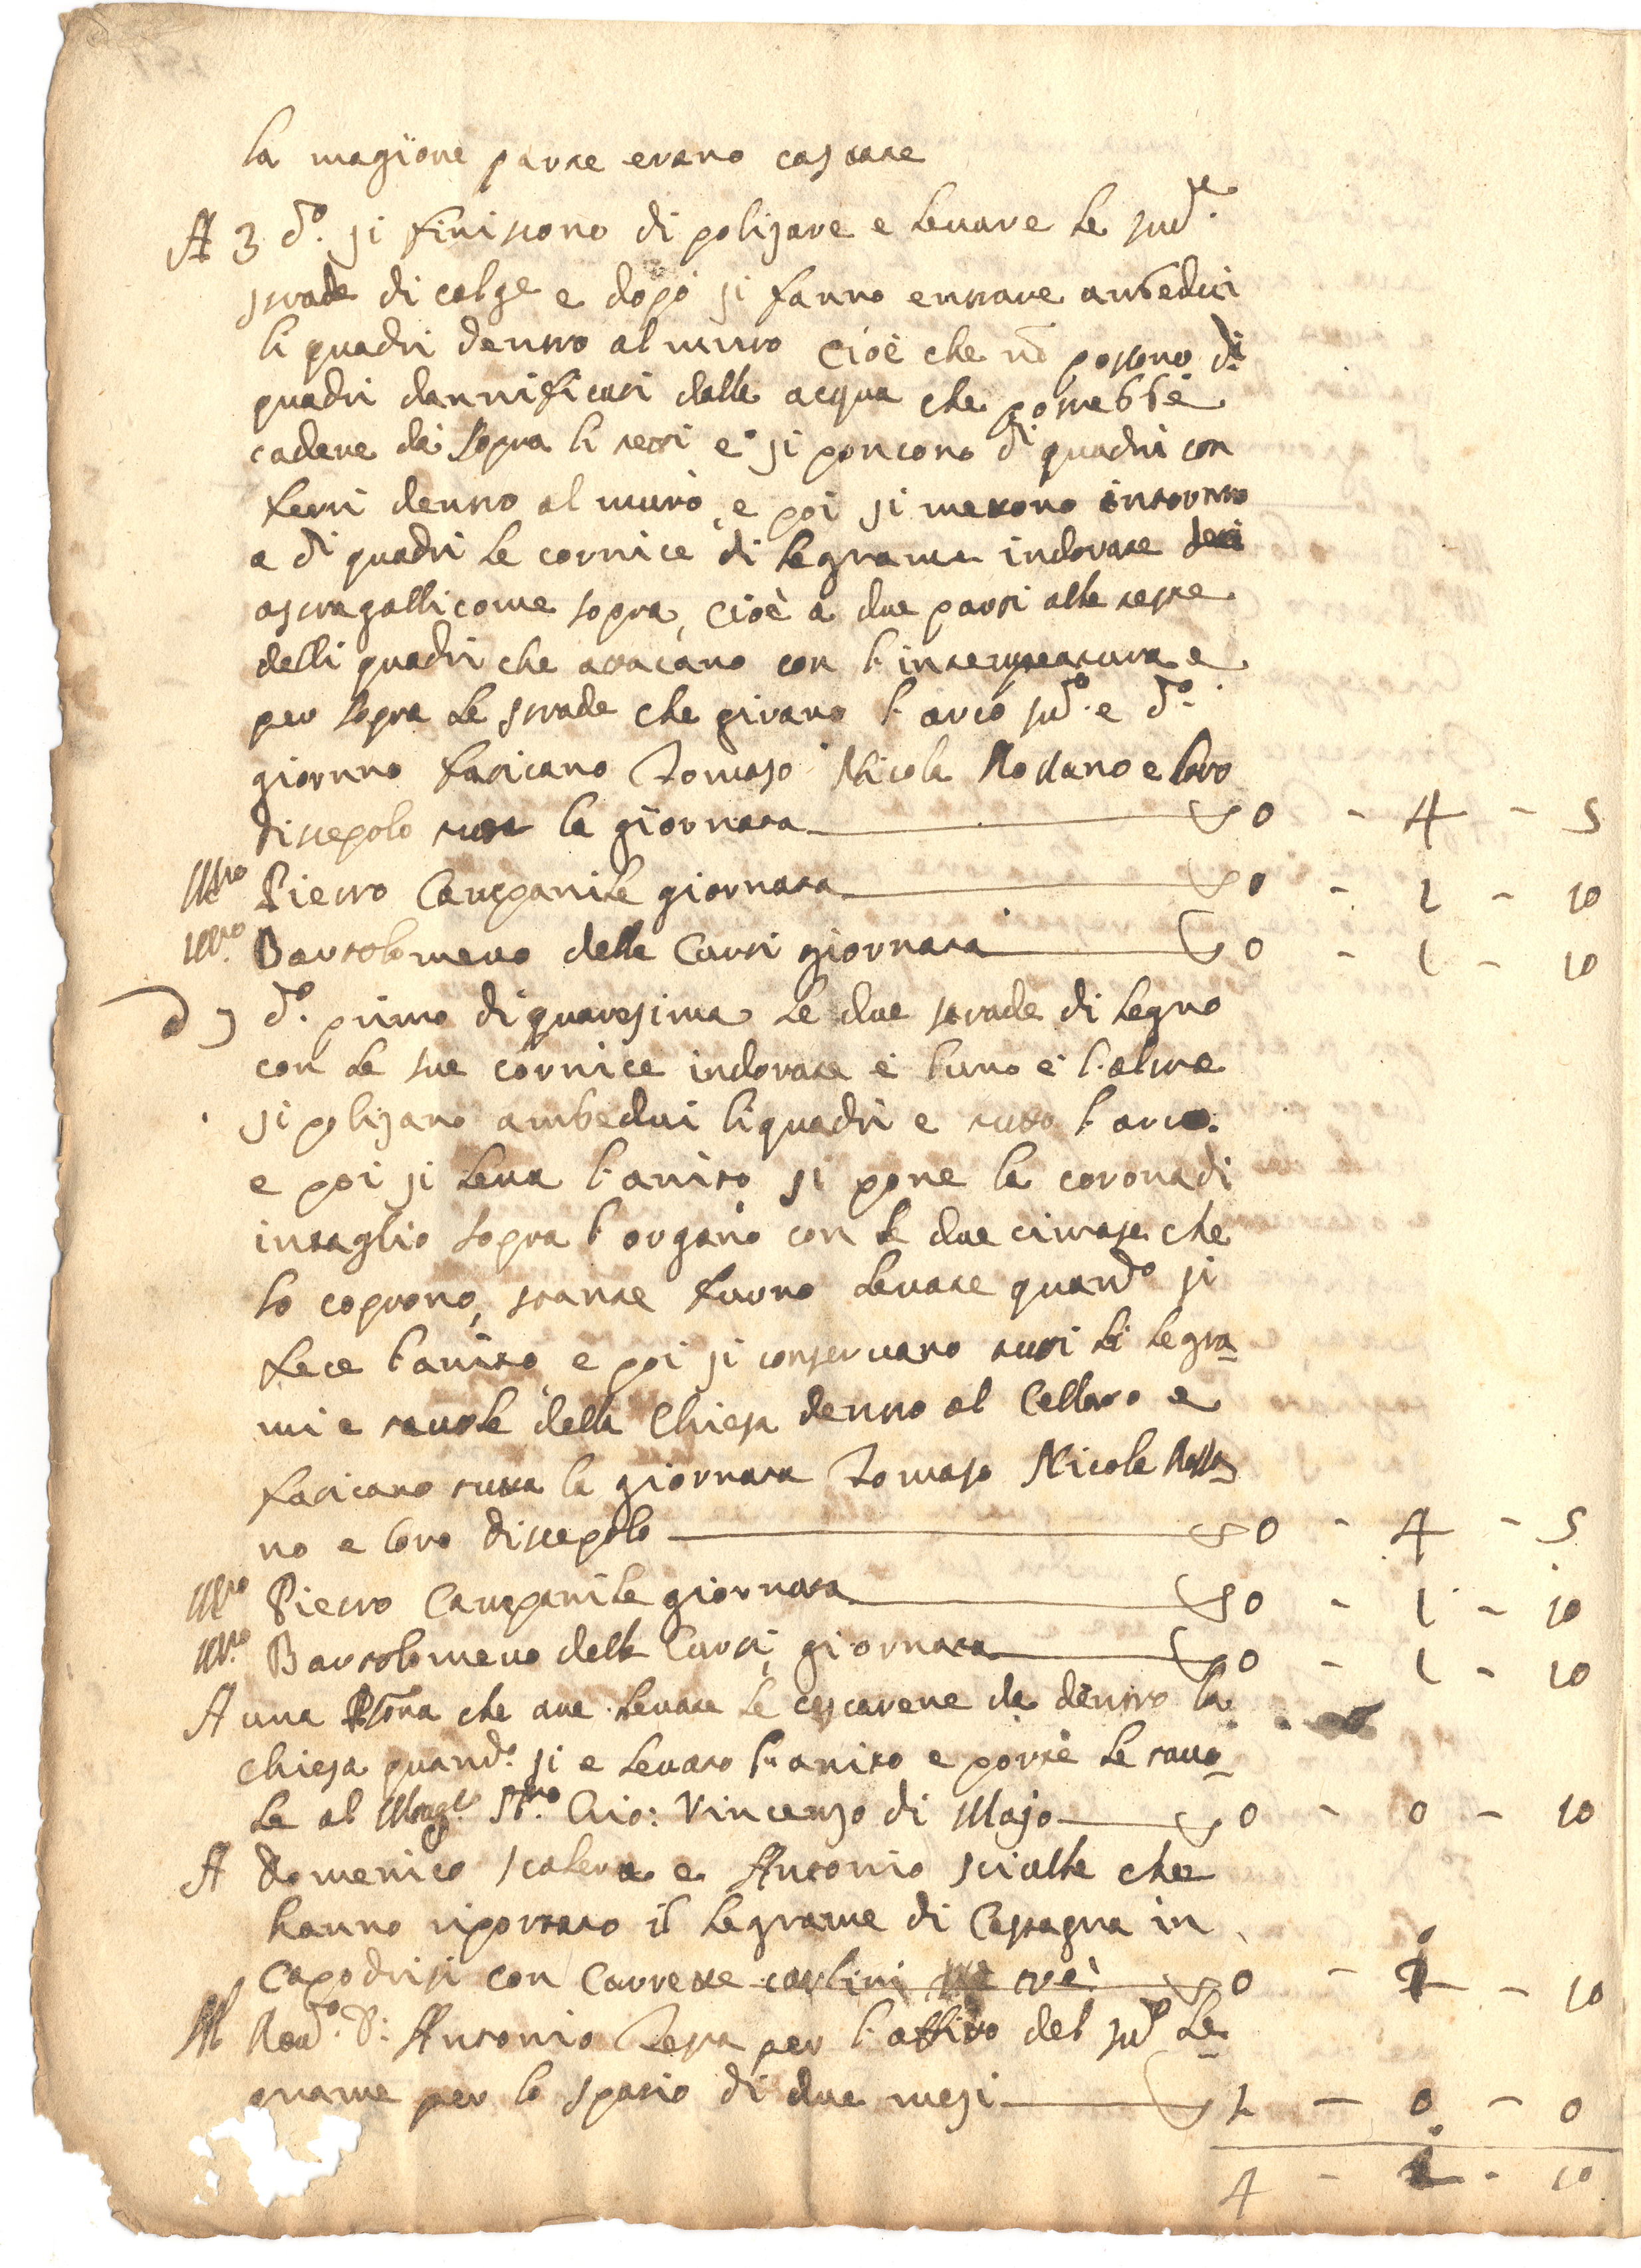 la magiore parte erano cascate
A 3 d.º si finiscono di polizare e levare le sud.e
strade di calge e dopò si fanno entrare ambedui
li quadri dentro al muro Cioè che nõ possono d.i
quadri dannificasi dalle acqua che potrebbe
cadere da sopra li tetti e si poncono d.i quadri con
ferri dentro al muro, e poi si mettono intorno
a d.i quadri le cornice di legname indorate
astragalli come sopra, Cioè a due parti alle teste
delli quadri che attacano con l'intempiatura e
per sopra le strade che girano l'arco sud.º e d.º
giorno faticano Tomaso Nicola Rossano e loro
discepolo tutta la giornata 0 - 4 - 5
M.ro Pietro Campanile giornata 0 - 1 - 10
M.ro Bartolomeuo delle Curti giornata 0 - 1 - 10
d.º primo di quaresima le due strade di legno
con le sue cornice indorate e l'uno e l'altra
si polizano ambedui li quadri e tutto l'arco.
e poi si leva l'anito si pone la corona di
intaglio sopra l'organo con le due cimase che
lo coprono, stante furno levate quand.º si
fece l'anito e poi si conservano tutti li legna-
mi e tavole della Chiesa dentro al Cellaro e
faticano tutta la giornata Tomaso Nicola Rossa
no e loro discepolo 0 - 4 - 5
M.ro Pietro Campanile giornata 0 - 1 - 10
M.ro Bartolomeuo delle Curti giornata 0 - 1 - 10
A una che ave levate le da dentro la
Chiesa quand.º si e levato l'anito e portè le tavo-
le al Mag.co Gio: Vincenzo di Majo 0 - 0 - 10
A Domenico Scalera e Antonio Scialla che
hanno riportato il legname di Castagna in
Capodrisi con Carrette carlini trè 0 - - 10
Al Rev.do D: Antonio Tessa per l'affitto del sud.º le-
gname per lo spatio di due mesi 1 - 0 - 0
4 - - 10